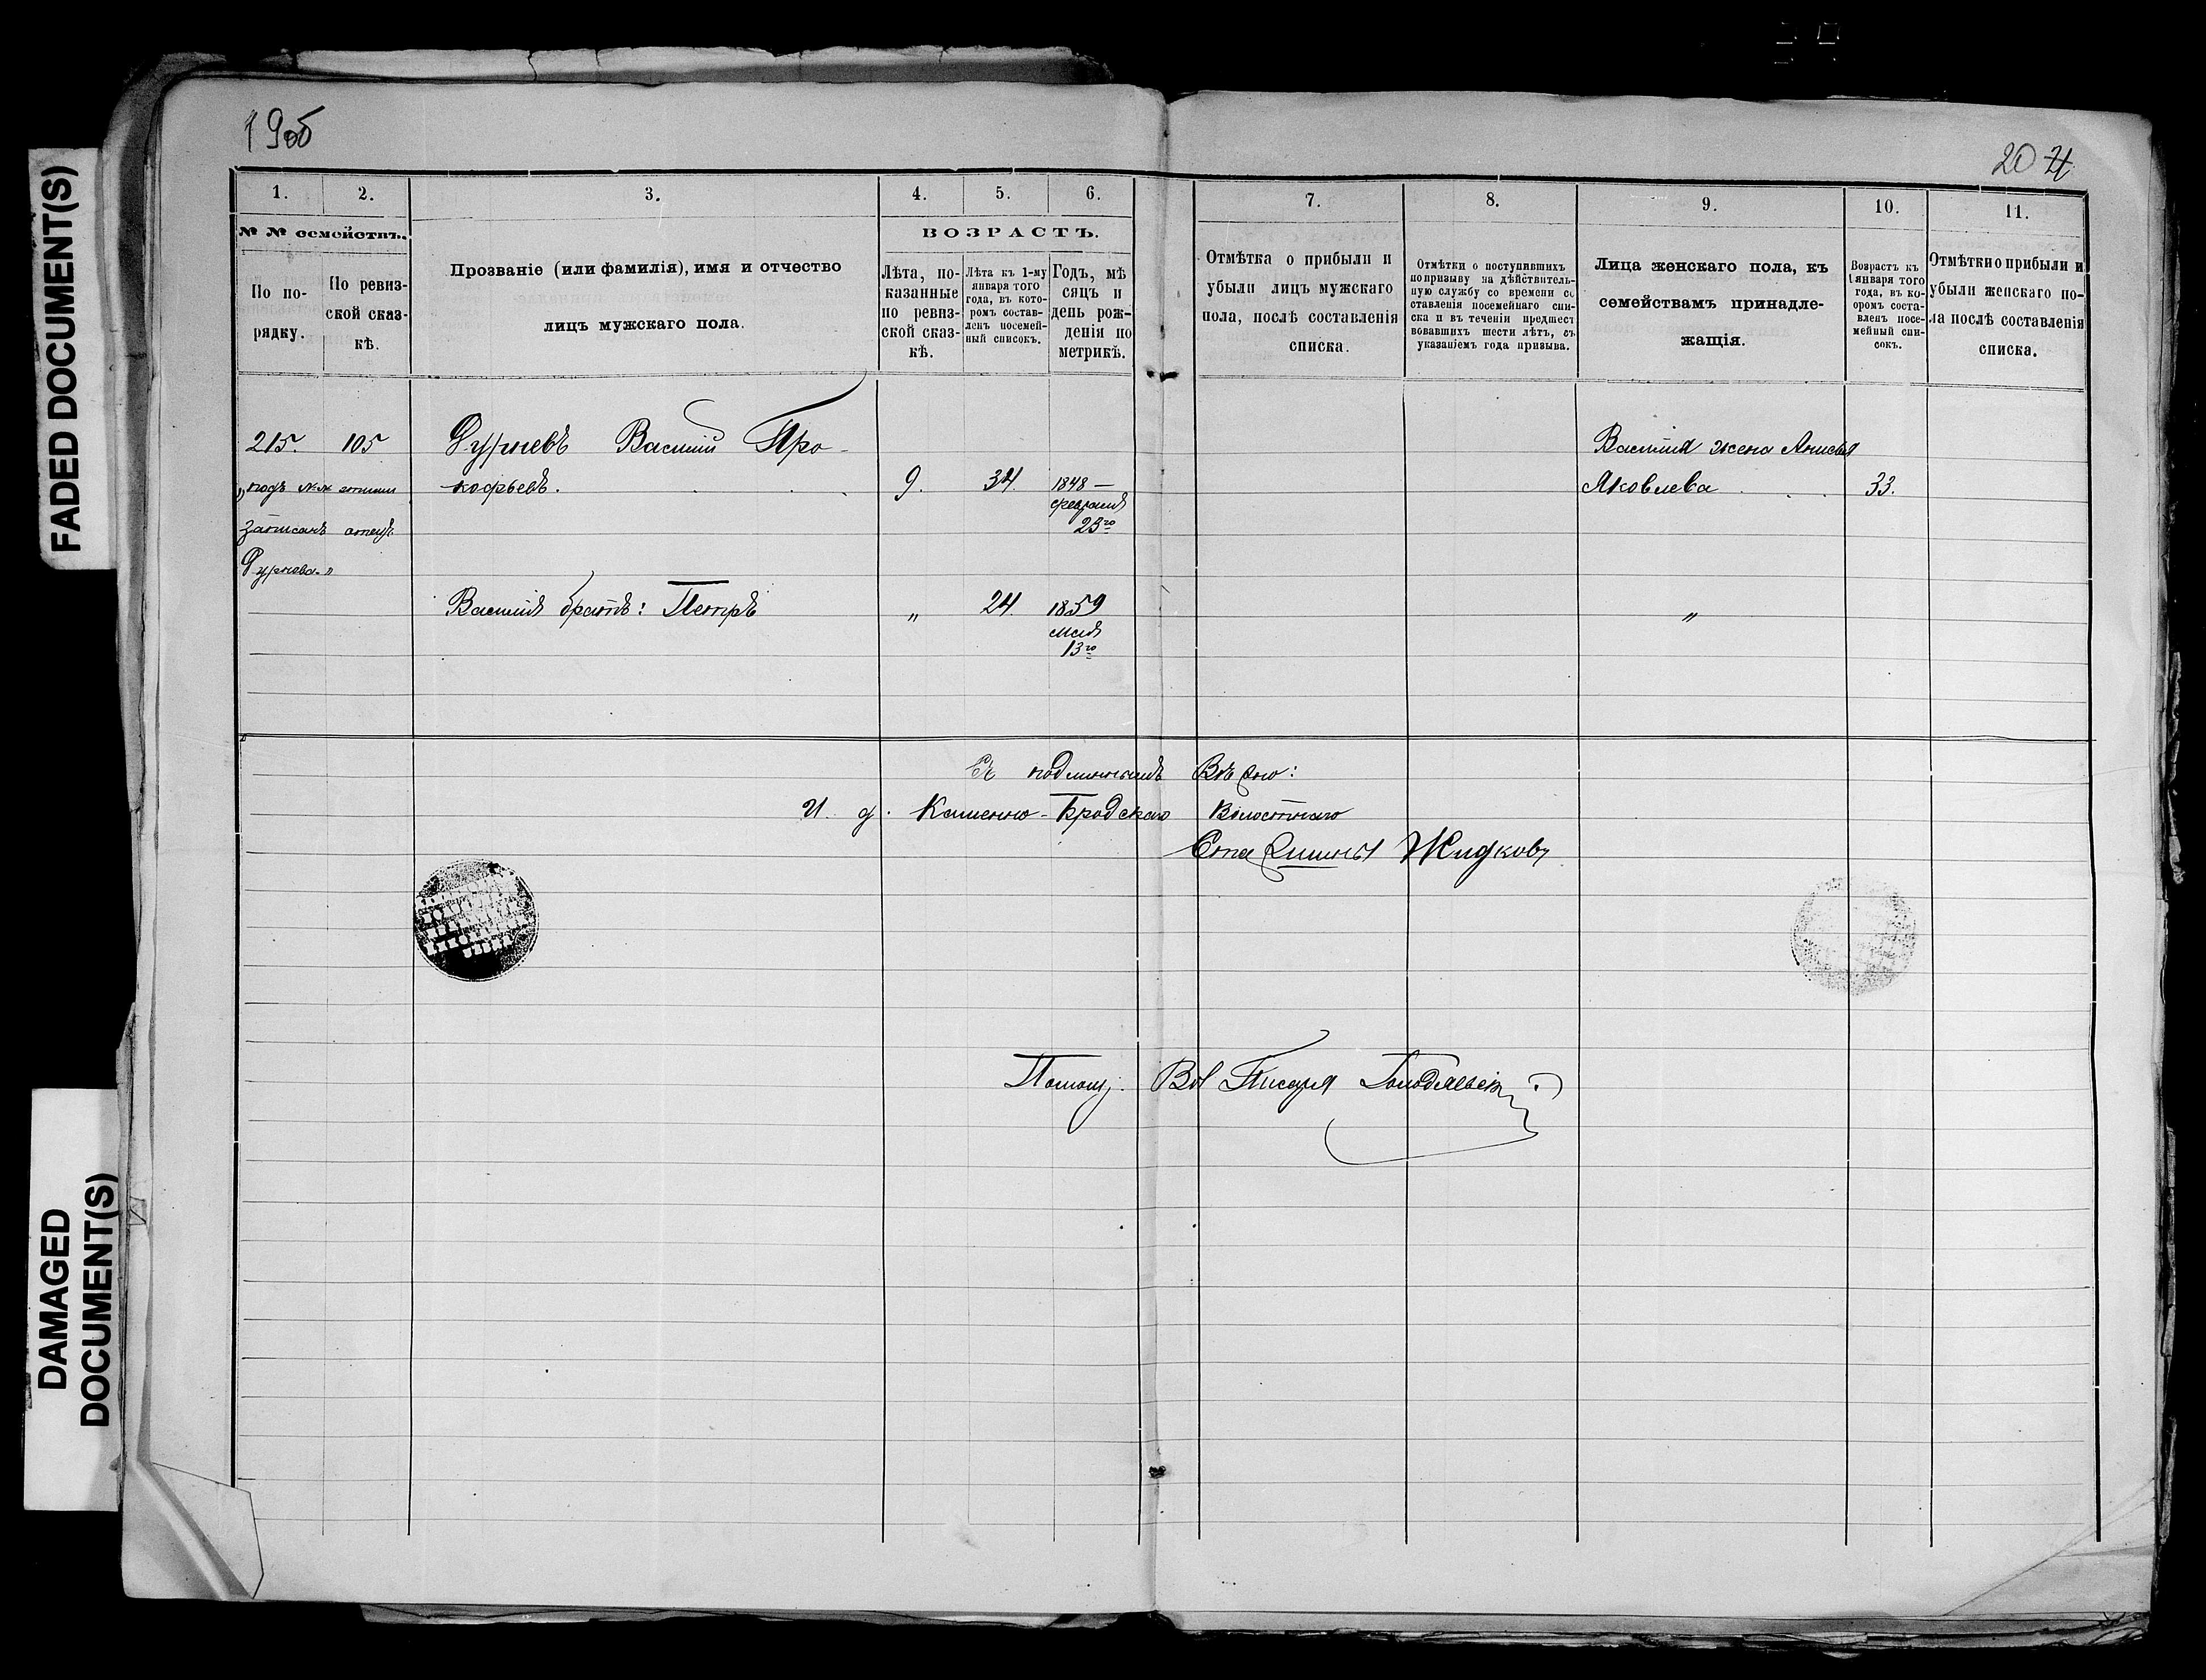 FADED DOCUMENT(S)
DAMAGED
DOCUMENT(S)
20
1. 2. 3. 4. 5. 6. 7. 8. 9. 10. 11.
№ № семействъ.
По по-
рядку.
По ревиз-
ской сказ-
кѣ.
Прозваніе (или фамилія), имя и отчество
лицъ мужскаго пола.
ВОЗРАСТЪ.
Лѣта, по-
казанные
по ревиз-
ской сказ-
кѣ.
Лѣта къ 1-му
января того
года, въ кото-
ромъ состав-
ленъ посемей-
ный списокъ.
Годъ, мѣ
сяцъ и
день рож-
денія по
метрикѣ.
Отмѣтка о прибыли и
убыли лицъ мужскаго
пола, послѣ составленія
списка.
Отмѣтки о поступившихъ
по призыву на дѣйствитель-
ную службу со времени со
ставленія посемейнаго спи-
ска и въ теченіи предшест
вовавшихъ шести лѣтъ, съ
указаніемъ года призыва.
Лица женскаго пола, къ
семействамъ принадле-
жащія.
Возрастъ къ
1 января того
года, въ ко-
ромъ соста-
вленъ посе-
мейный спи-
сокъ.
Отмѣтки о прибыли и
убыли женскаго по-
ла послѣ составленія
списка.
215. 105 Фурневъ Василій Про-
кофьевъ. 9. 34. 1848 —
февраля
23го
„подъ №№ этими
записанъ отецъ
Фурнева."
Василія жена Анисья
Яковлева 33.
Василія братъ: Петръ „ 24. 1859 „
мая
13го
Съ подлиннымъ Вѣрно:
И. д. Каменно-Бродскаго Волостного
Старшины Жидковъ
Помощ. Вол Писаря